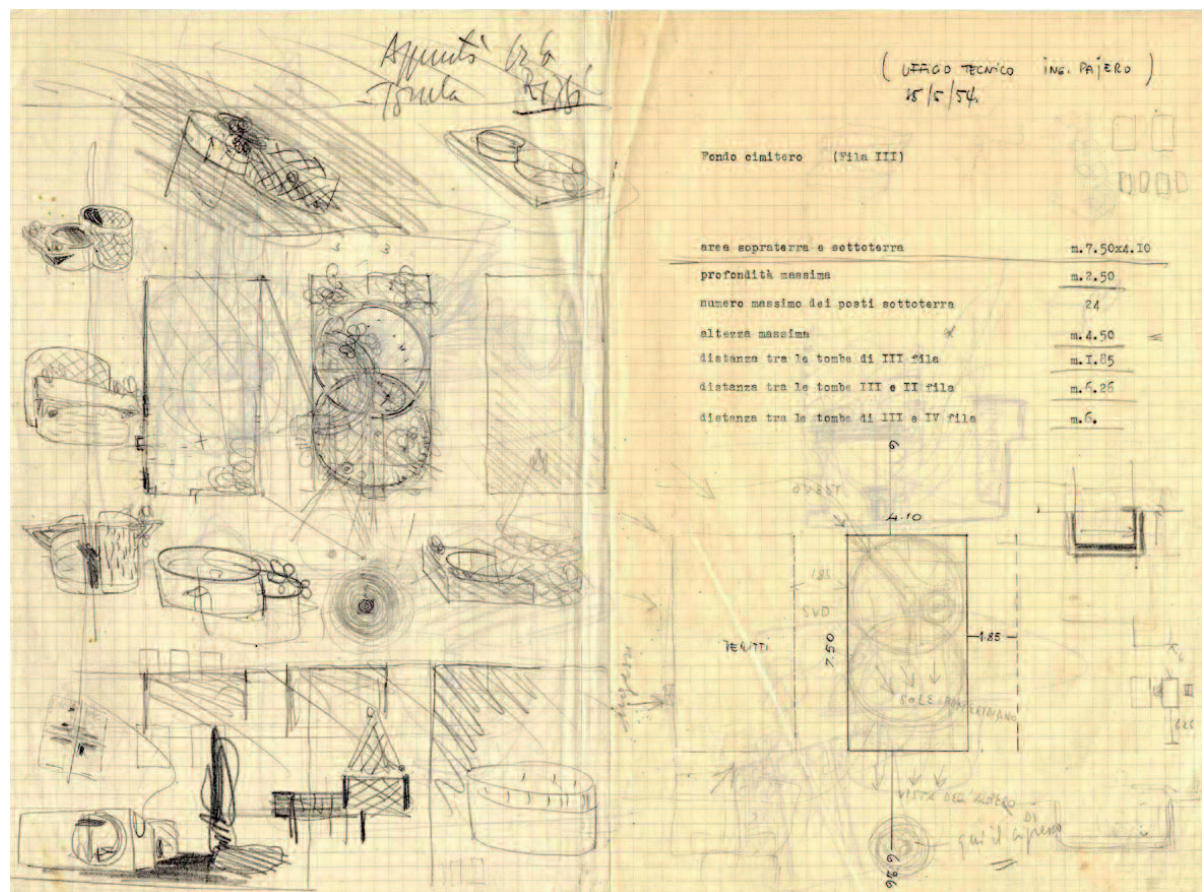 Appunti
Tomba Rizzi
( UFFICIO TECNICO ING. PAJERO )
15/5/54.
Fondo cimitero (Fila III)
area sopraterra e sottoterra m.7.50x4.10
profondità massima m.2.50
numero massimo dei posti sottoterra 24
altezza massima m.4.50
distanza tra le tombe di III fila m.I.85
distanza tra le tombe III e II fila m.6.26
distanza tra le tombe di III e IV fila m.6.
6
4.10
185
SUD
7.50
1.85
SOLE
VISTA DELL'ALBERO
DI
qui il cipresso
6.26
626